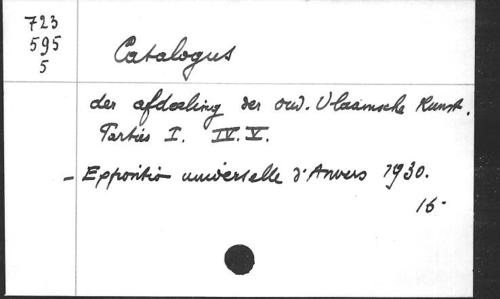 723
595
5
Catalogus
der afdeeling der oud. Vlaamsche Kunst.
Parties I. IV. V.
- Exposition universelle d'Anvers 1930.
16.